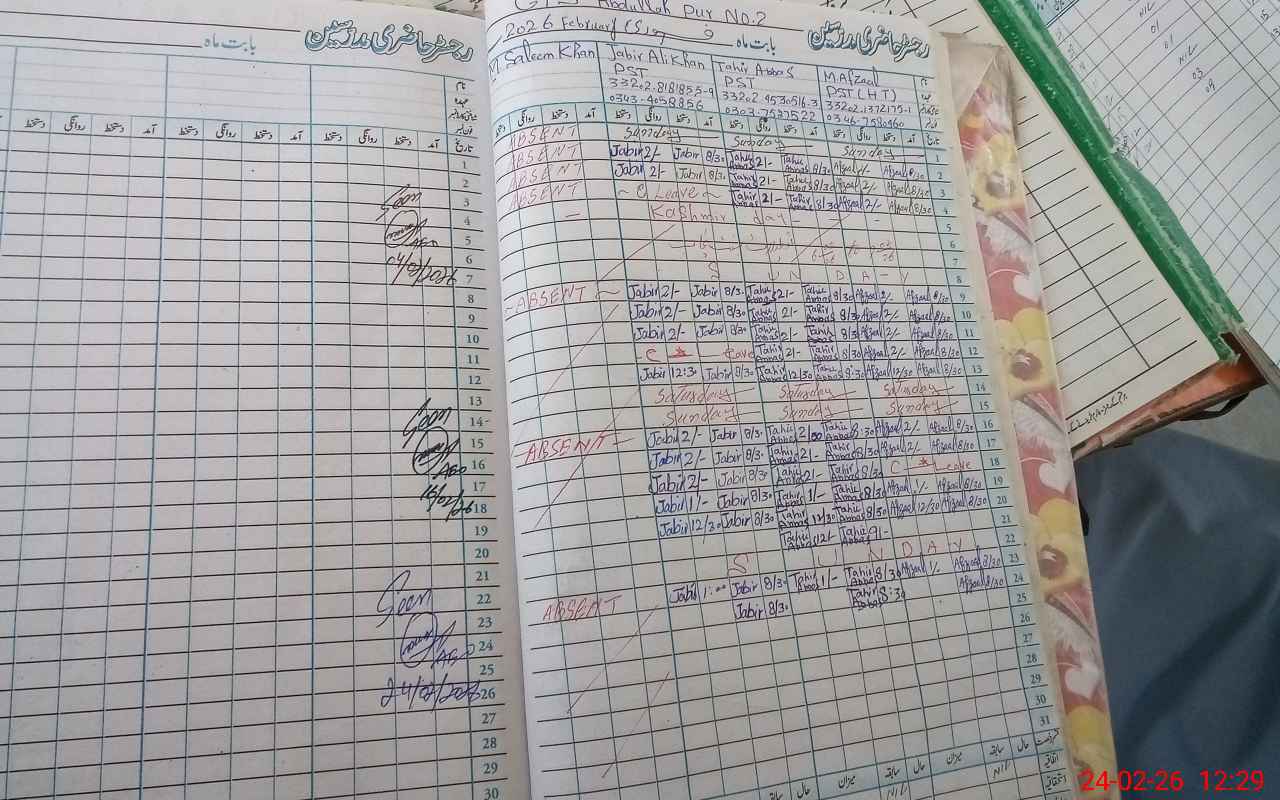 رجسٹر حاضری مدرسین
بابت ماہ
نام
عہدہ
تاریخ آمد دستخط روانگی دستخط آمد دستخط روانگی دستخط
1
2
3
4
5
6
7
8
9
10
11
12
13
14
15
16
17
18
19
20
21
22
23
24
25
26
27
28
29
30
Seen
AEO
04/02/2026
Seen
AEO
16/02/26
Seen
AEO
24/02/2026
Abdullah Pur No.2
2026 February فروری بابت ماہ رجسٹر حاضری مدرسین
M Saleem Khan Jabir Ali Khan Tahir Abbas M. Afzaal
PST PST PST (H.T)
33202-8181855-9 33202-9530516-3 33202-1372175-1
0343-4058856 0303-7527522 0346-7580960
تاریخ آمد دستخط روانگی دستخط آمد دستخط روانگی دستخط
ABSENT Sunday Sunday Sunday 1
ABSENT Jabir 2/- Jabir 8/30 Tahir Abbas 2/- Tahir Abbas 8/30 Afzaal 2/- Afzaal 8/30 2
ABSENT Jabir 2/- Jabir 8/30 Tahir Abbas 2/- Tahir Abbas 8/30 Afzaal 2/- Afzaal 8/30 3
ABSENT C Leave Tahir Abbas 2/- Tahir Abbas 8/30 Afzaal 2/- Afzaal 8/30 4
Kashmir day 5
6
7
S U N D A Y 8
ABSENT Jabir 2/- Jabir 8/30 Tahir Abbas 2/- Tahir Abbas 8/30 Afzaal 2/- Afzaal 8/30 9
Jabir 2/- Jabir 8/30 Tahir Abbas 2/- Tahir Abbas 8/30 Afzaal 2/- Afzaal 8/30 10
Jabir 2/- Jabir 8/30 Tahir Abbas 2/- Tahir Abbas 8/30 Afzaal 2/- Afzaal 8/30 11
C Leave Tahir Abbas 2/- Tahir Abbas 8/30 Afzaal 2/- Afzaal 8/30 12
Jabir 12:30 Jabir 8/30 Tahir Abbas 12/30 Tahir Abbas 8:30 Afzaal 12/30 Afzaal 8/30 13
Saturday Saturday Saturday 14
Sunday Sunday Sunday 15
ABSENT Jabir 2/- Jabir 8/30 Tahir Abbas 2/00 Tahir Abbas 8:30 Afzaal 2/- Afzaal 8/30 16
Jabir 2/- Jabir 8/30 Tahir Abbas 2/- Tahir Abbas 8/30 Afzaal 2/- Afzaal 8/30 17
Jabir 2/- Jabir 8/30 Tahir Abbas 2/- Tahir Abbas 8/30 C Leave 18
Jabir 1/- Jabir 8/30 Tahir Abbas 1/- Tahir Abbas 8/30 Afzaal 1/- Afzaal 8/30 19
Jabir 12/30 Jabir 8/30 Tahir Abbas 12/30 Tahir Abbas 8/30 Afzaal 12/30 Afzaal 8/30 20
Tahir Abbas 12/- Tahir Abbas 9/- 21
S U N D A Y 22
ABSENT Jabir 1:00 Jabir 8/30 Tahir Abbas 1/- Tahir Abbas 8/30 Afzaal 1/- Afzaal 8/30 23
Jabir 8/30 Tahir Abbas 8:30 Afzaal 8/30 24
25
26
27
28
29
30
31
حال سابقہ میزان حال سابقہ میزان حال سابقہ
Nil Nil
NIL
01
01
NIL
03
09
24-02-26 12:29